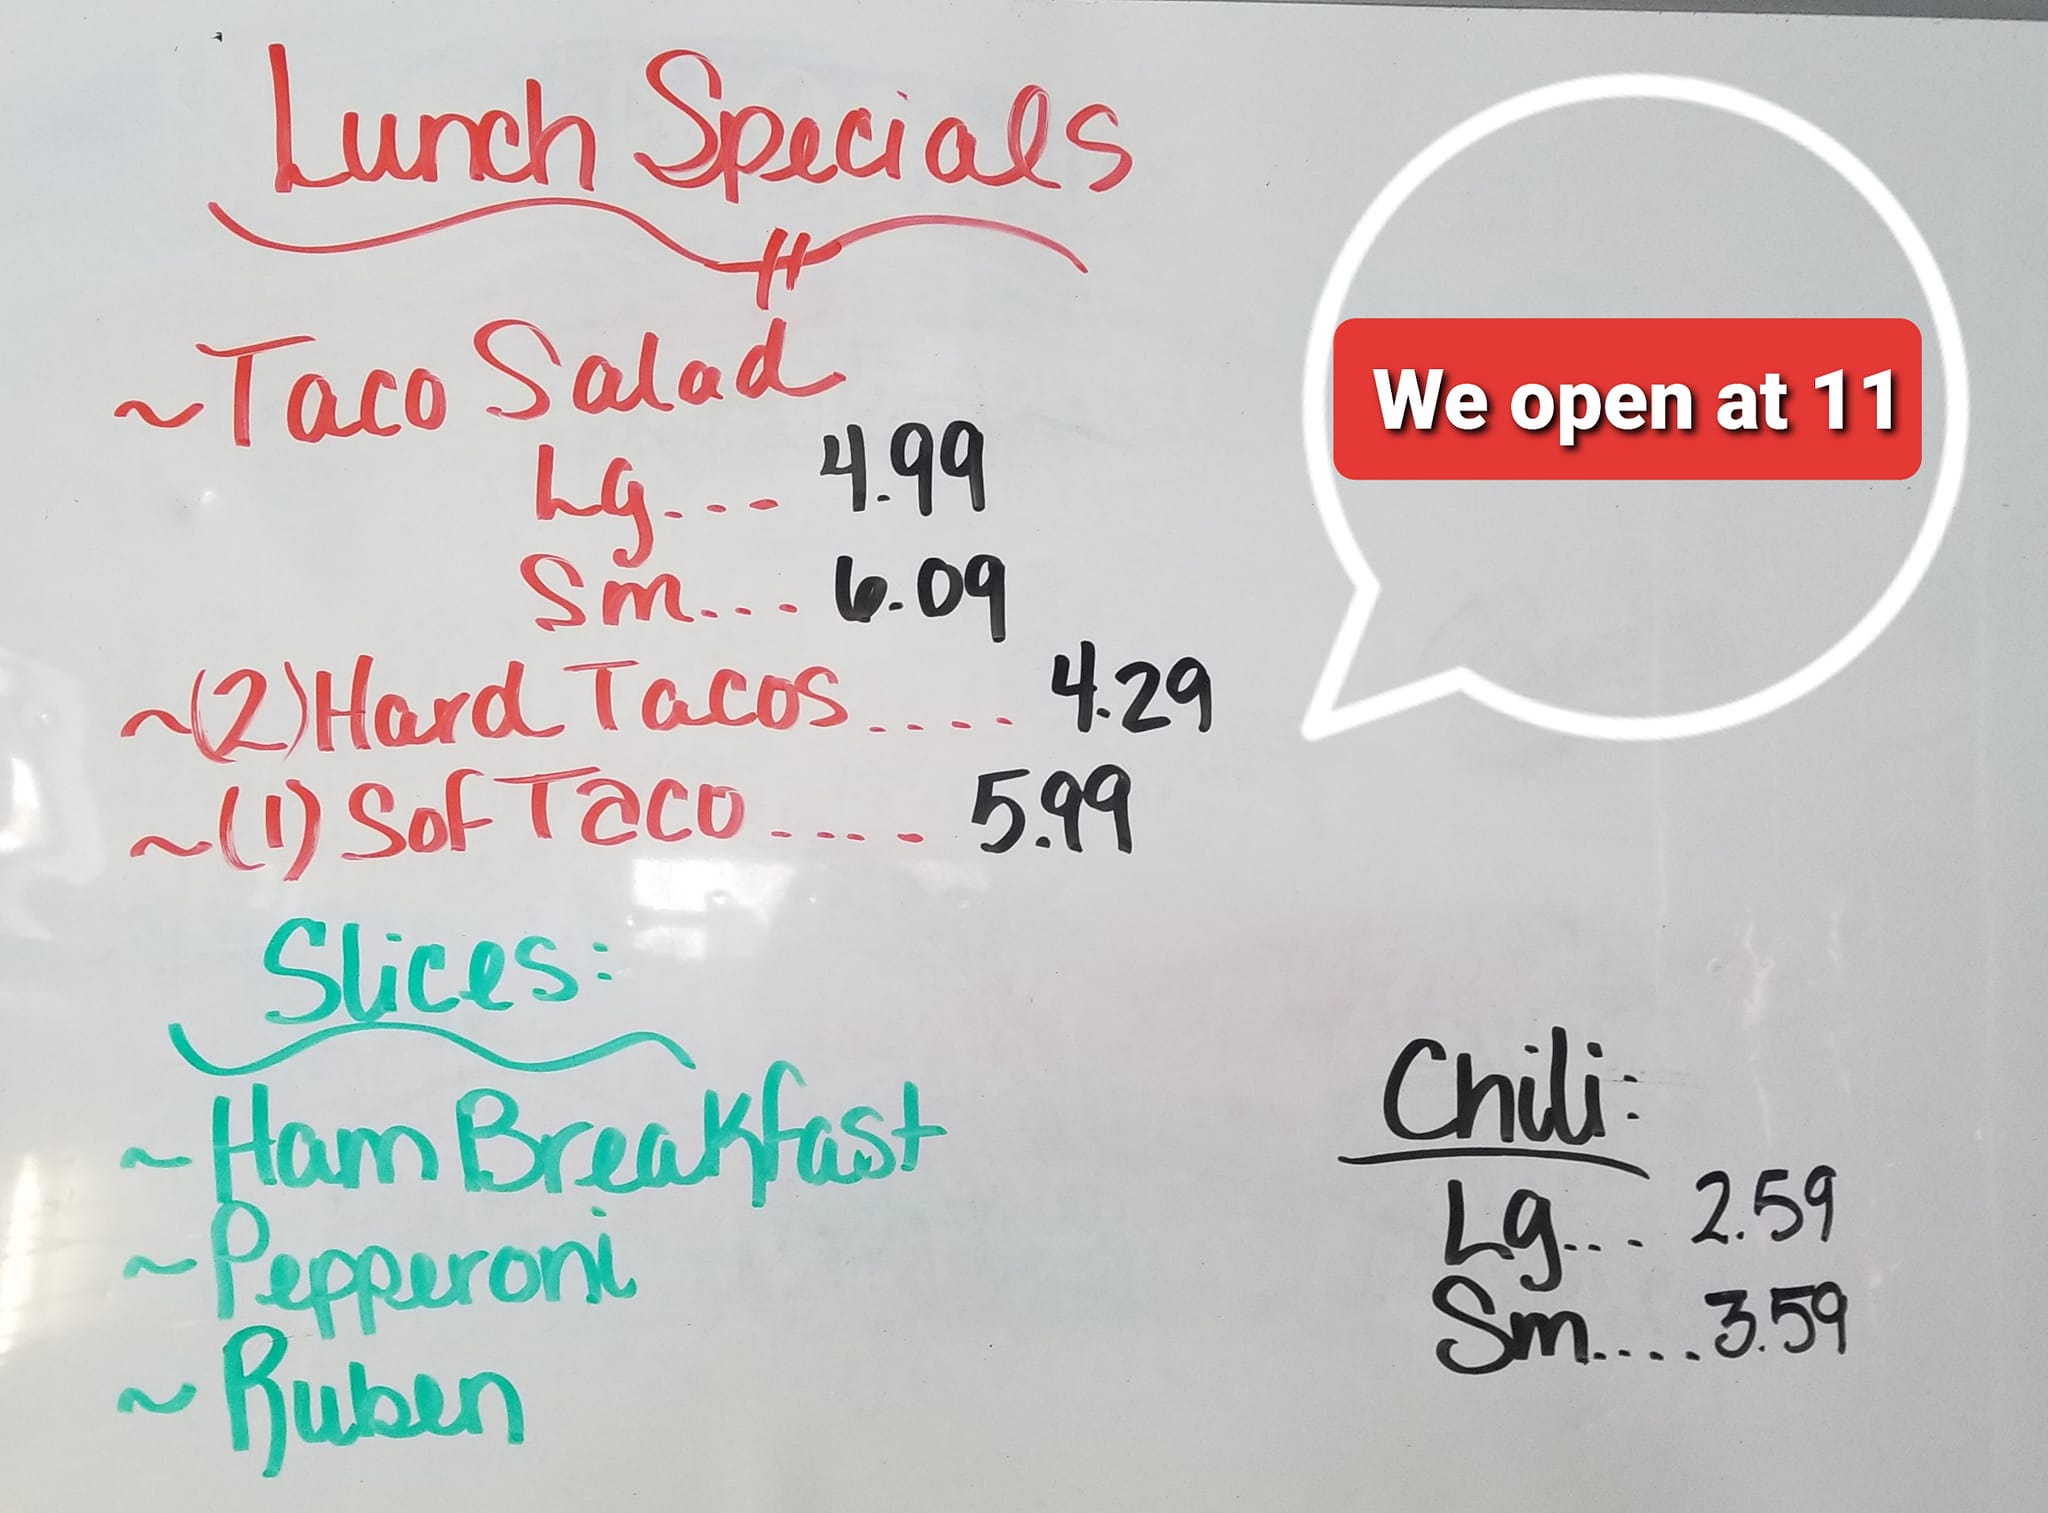 Lunch Specials
We open at 11
~Taco Salad
Lg... 4.99
Sm... 6.09
~(2) Hard Tacos.... 4.29
~(1) Sof Taco.... 5.99
Slices:
~Ham Breakfast
~Pepperoni
~Ruben
Chili:
Lg... 2.59
Sm.... 3.59